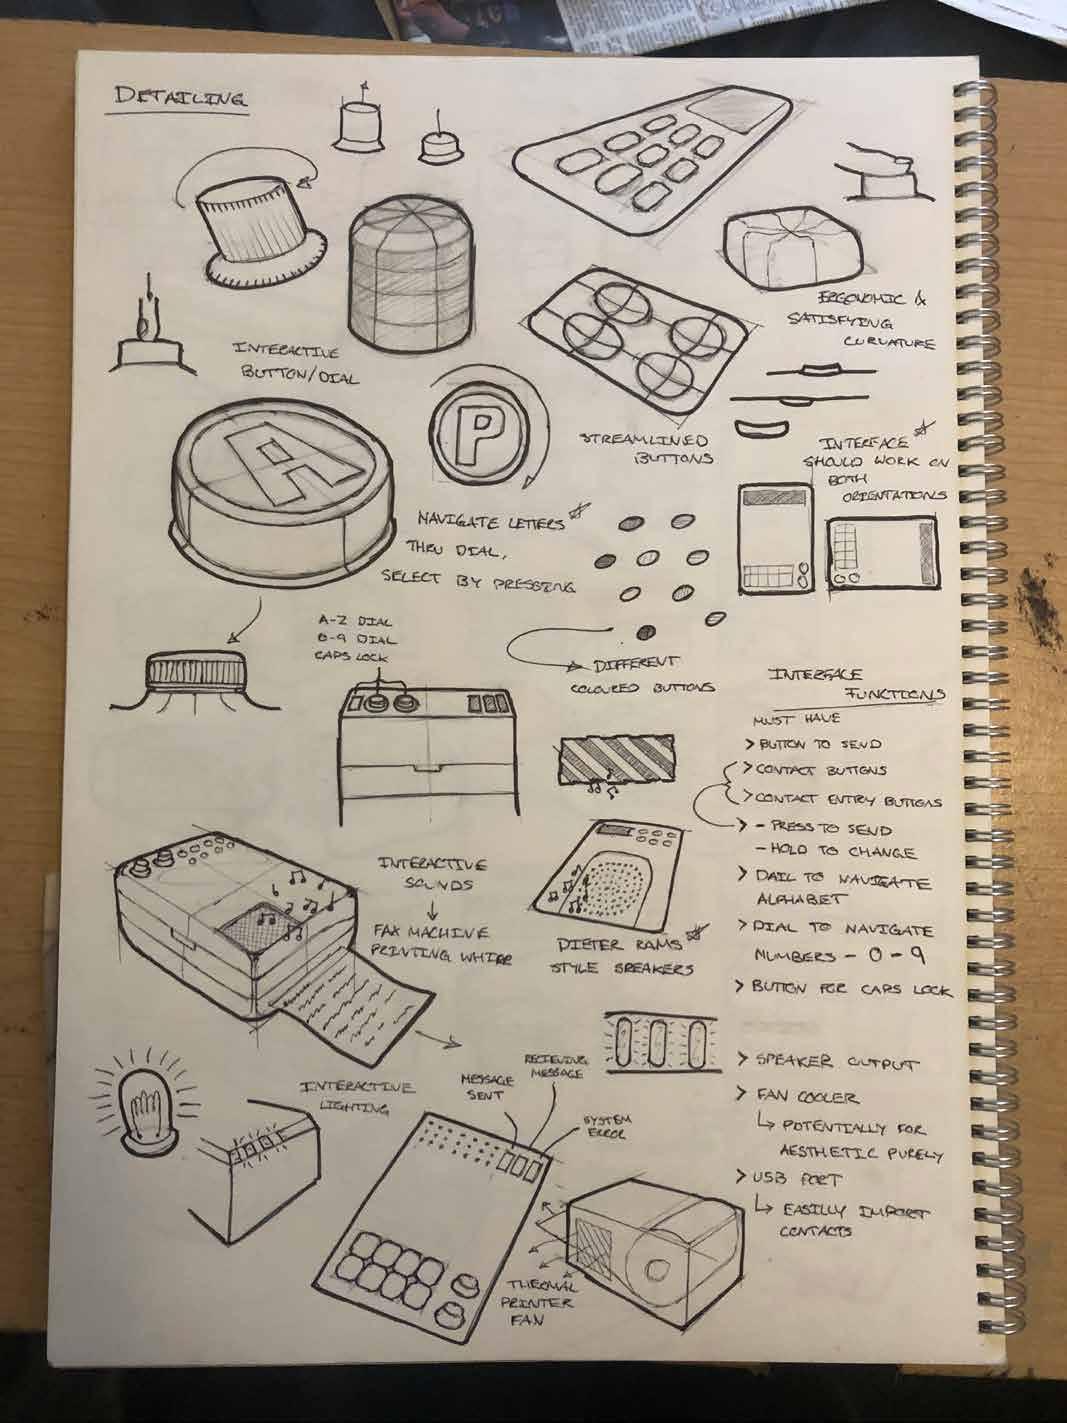 DETAILING
ERGONOMIC &
SATISFYING
CURVATURE
INTERACTIVE
BUTTON/DIAL
A
P
STREAMLINED
BUTTONS
INTERFACE
SHOULD WORK ON
BOTH
ORIENTATIONS
NAVIGATE LETTERS
THRU DIAL,
SELECT BY PRESSING
A-Z DIAL
0-9 DIAL
CAPS LOCK
DIFFERENT
COLOURED BUTTONS
INTERFACE
FUNCTIONS
MUST HAVE
> BUTTON TO SEND
> CONTACT BUTTONS
> CONTACT ENTRY BUTTONS
> - PRESS TO SEND
- HOLD TO CHANGE
> DAIL TO NAVIGATE
ALPHABET
> DIAL TO NAVIGATE
NUMBERS - 0-9
> BUTTON FOR CAPS LOCK
INTERACTIVE
SOUNDS
↓
FAX MACHINE
PRINTING WHIRR
DIETER RAMS
STYLE SPEAKERS
> SPEAKER OUTPUT
> FAN COOLER
↳ POTENTIALLY FOR
AESTHETIC PURELY
> USB PORT
↳ EASILLY IMPORT
CONTACTS
INTERACTIVE
LIGHTING
MESSAGE
SENT
RECIEVING
MESSAGE
SYSTEM
ERROR
THERMAL
PRINTER
FAN